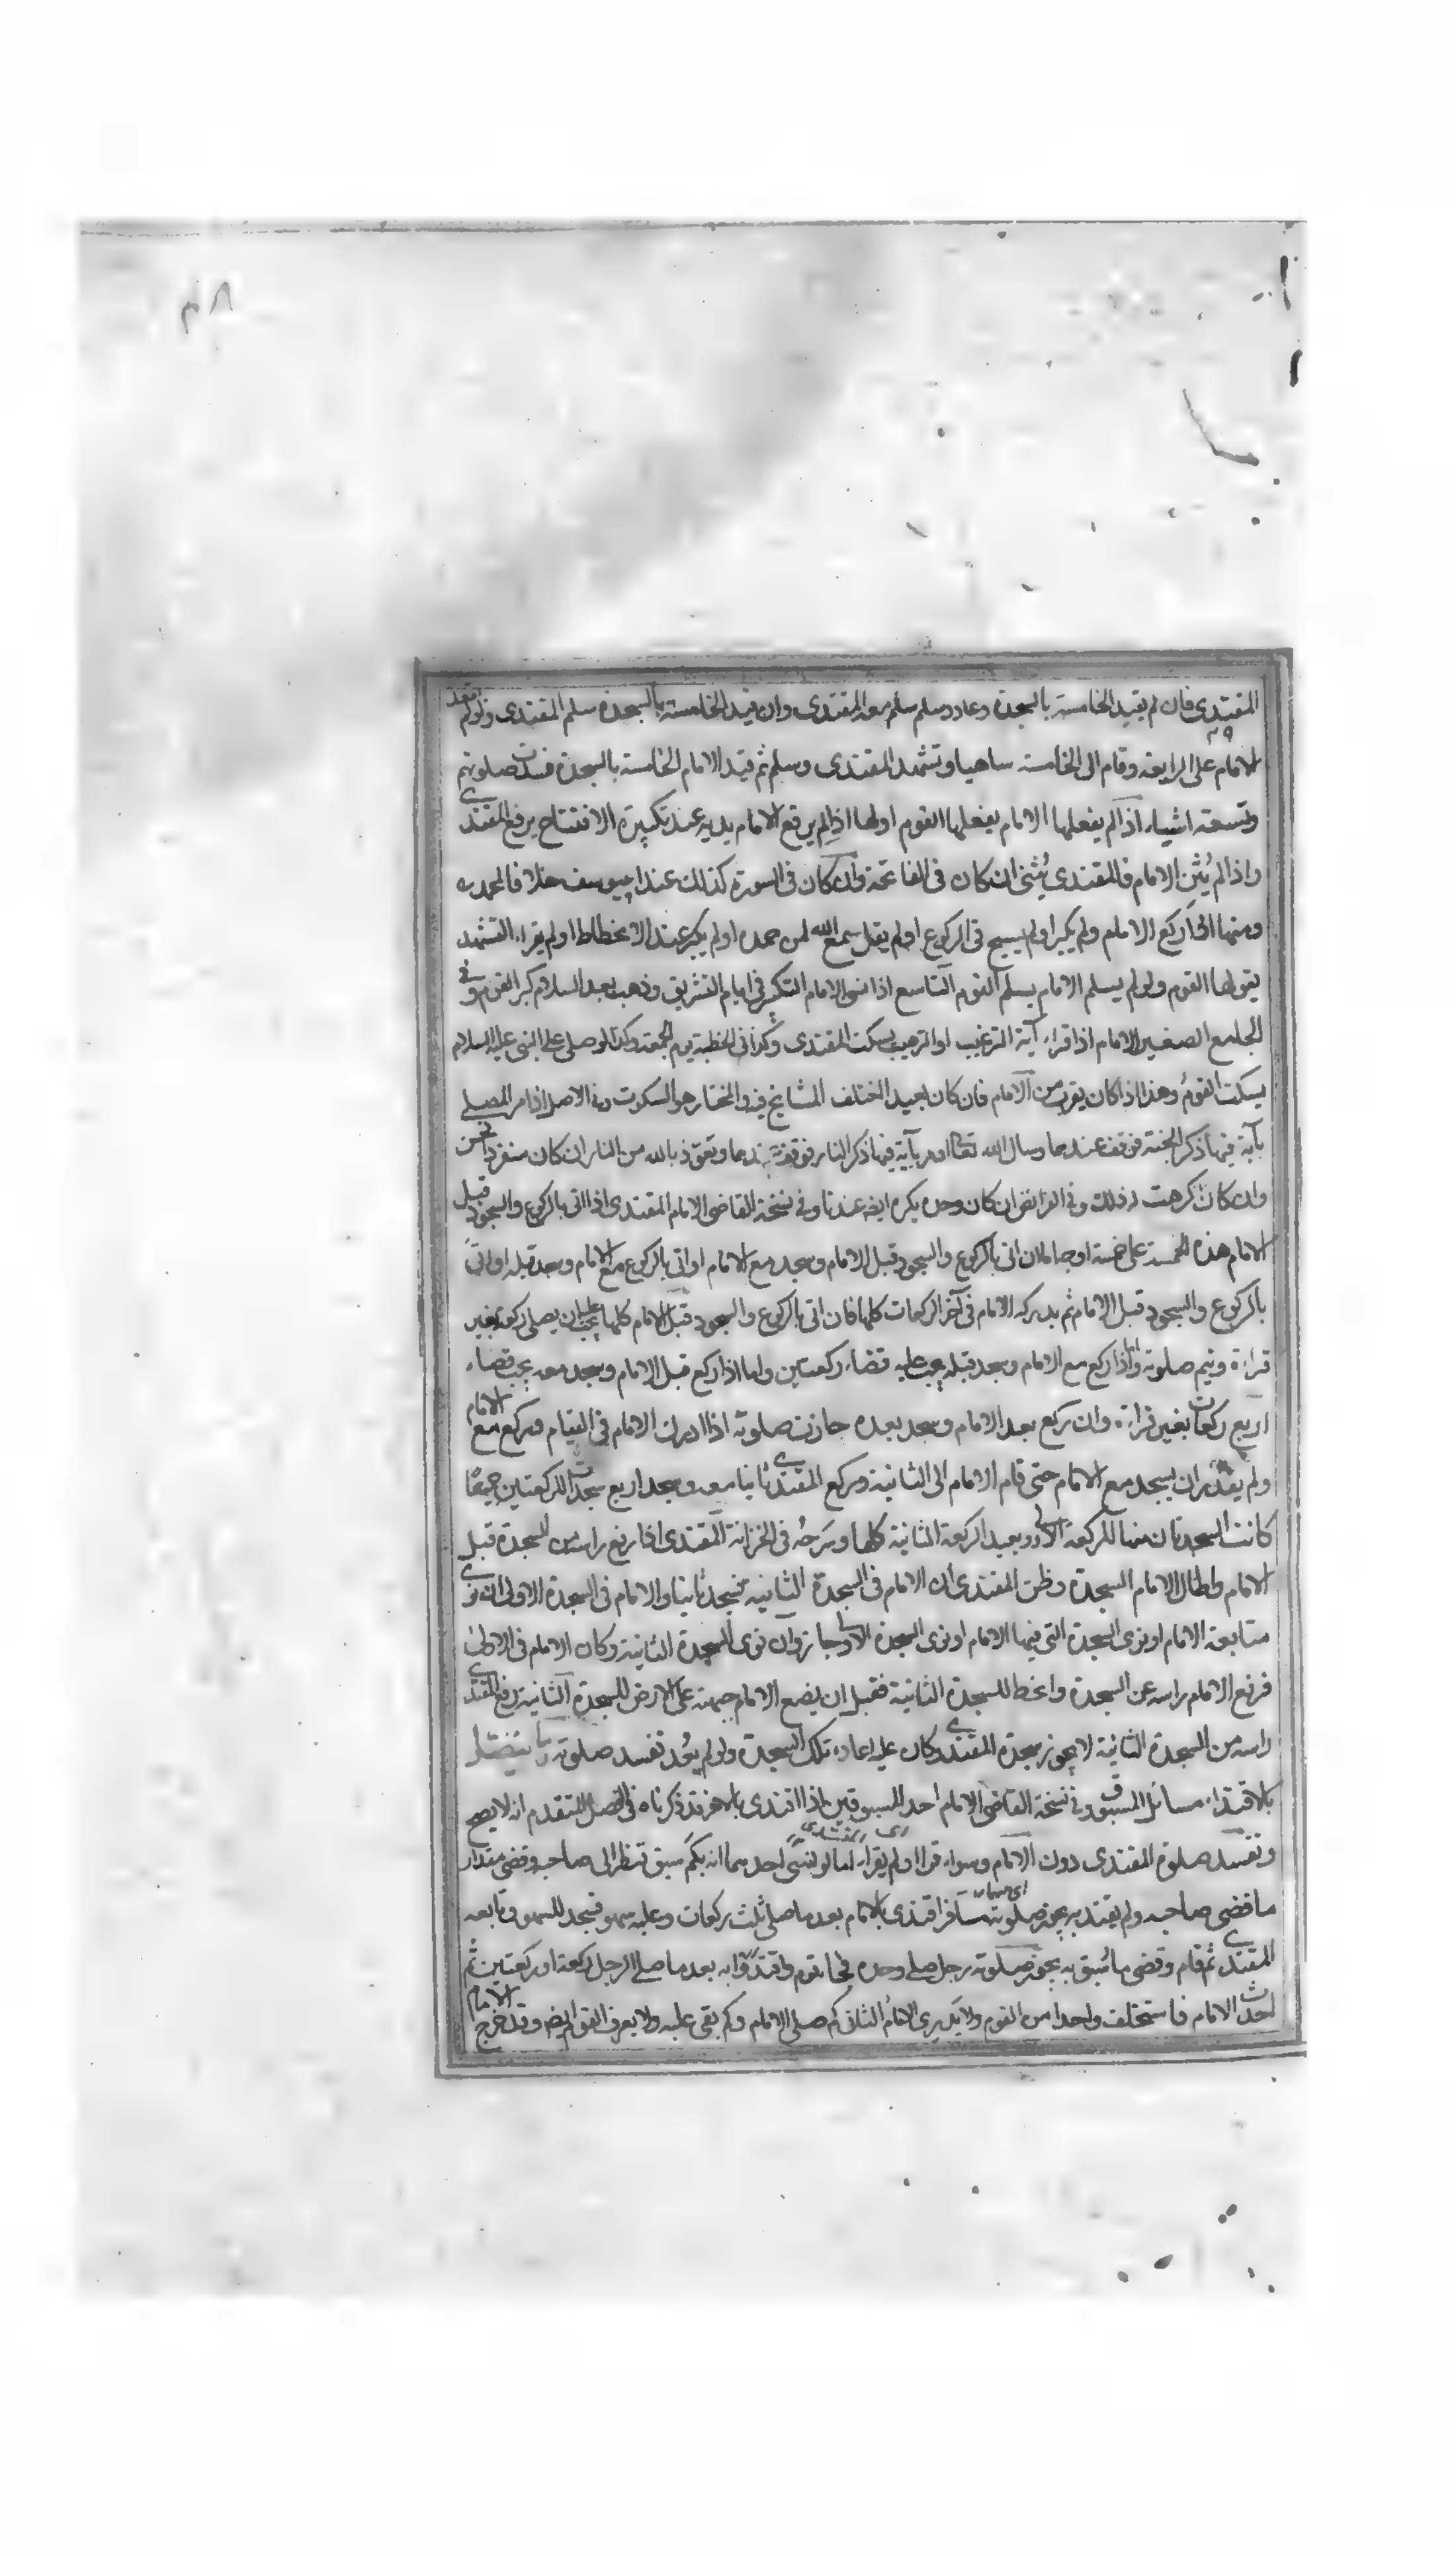 ٨٣
المقتدى فان لم يقيد الخامسة بالسجدة وعاد وسلم سلم معه المقتدى وان قيد الخامسة بالسجدة سلم المقتدى ولو لم يقعد
الامام على الرابعة وقام الى الخامسة ساهيا وتشهد المقتدى وسلم ثم قيد الامام الخامسة بالسجدة فسدت صلوتهم
وتسعة اشياء اذا لم يفعلها الامام يفعلها القوم اولها اذا لم يرفع الامام يديه عند تكبيرة الافتتاح يرفع المقتدى
واذا لم يُثنِ الامام فالمقتدى يُثنى ان كان فى الفاتحة وان كان فى السورة كذلك عند ابيوسف خلافا لمحمد
ومنها اذا ركع الامام ولم يكبر اولم يسبح فى الركوع اولم يقل سمع الله لمن حمده اولم يكبر عند الانحطاط اولم يقراء التشهد
يقولها القوم ولو لم يسلم الامام يسلم القوم التاسع اذا نسى الامام التكبير فى ايام التشريق وذهب بعد السلام كبر القوم وفى
الجامع الصغير الامام اذا قراء آية الترغيب او الترهيب يسكت المقتدى وكذا فى الخطبة يوم الجمعة وكذا لو صلى على النبى عليه السلام
يسكت القوم وهذا اذا كان يقرب من الامام فان كان بعيدا اختلف المشايخ فيه والمختار هو السكوت وفى الاصل اذا مر المصلى
بآية فيها ذكر الجنة فوقف عندها وسال الله تعالى او مر بآية فيها ذكر النار فوقف عندها وتعوّذ بالله من النار ان كان منفردا حسن
وان كان كرهت له ذلك وفى الفرائض ان كان وحده يكره ايضا عندنا وفى نسخة القاضى الامام المقتدى اذا اتى بالركوع والسجود قبل
الامام هذه المسئلة على خمسة اوجه اما ان اتى بالركوع والسجود قبل الامام وسجد مع الامام او اتى بالركوع مع الامام وسجد قبله او اتى
بالركوع والسجود قبل الامام ثم يدركه الامام فى آخر الركعات كلها فان اتى بالركوع والسجود قبل الامام كلها يجب عليه ان يصلى ركعة بغير
قراءة ويتم صلوته واما اذا ركع مع الامام وسجد قبله يجب عليه قضاء ركعتين واما اذا ركع قبل الامام وسجد معه يجب قضاء
اربع ركعات بغير قراءة وان ركع بعد الامام وسجد بعده جازت صلوته اذا ادرك الامام فى القيام وركع مع الامام
ولم يقدر ان يسجد مع الامام حتى قام الامام الى الثانية وركع المقتدى ثانيا معه وسجد اربع سجدات للركعتين جميعًا
كانت السجدتان منها للركعة الاولى ويعيد الركعة الثانية كلها وفى الخزانة المقتدى اذا رفع راسه من السجدة قبل
الامام واطال الامام السجدة وظن المقتدى ان الامام فى السجدة الثانية فسجد ثانيا والامام فى السجدة الاولى ان نوى
متابعة الامام او نوى السجدة التى فيها الامام او نوى السجدة الاولى جاز وان نوى السجدة الثانية وكان الامام فى الاولى
فرفع الامام راسه عن السجدة وانحط للسجدة الثانية فقبل ان يضع الامام جبهته على الارض للسجدة الثانية رفع المقتدى
راسه من السجدة الثانية لا يجوز سجدة المقتدى وكان عليه اعادة تلك السجدة ولو لم يُعد تفسد صلوته
بالاقتداء مسائل المسبوق وفى نسخة القاضى الامام احد المسبوقين اذا اقتدى بالاخر قد ذكرناه فى الفصل المتقدم انه لا يصح
وتفسد صلوة المقتدى دون الامام وسواء قرا اولم يقراء اما لو نسى احدهما انه بكم سبق تنظر الى صاحبه وقضى مقدار
ما قضى صاحبه ولم يقتد به يجوز صلوته مسافر اقتدى بالامام بعد ما صلى ثلث ركعات وعليه سهو فسجد للسهو وتابعه
المقتدى ثم قام وقضى ما سُبق به يجوز صلوته رجل صلى وحده فجاء قوم واقتدوا به بعد ما صلى الرجل ركعة او ركعتين ثم
احدث الامام فاستخلف واحدا من القوم ولا يدرى الامام الثانى كم صلى الامام وكم بقى عليه ولا يعرف القوم ايضا وقد خرج الامام